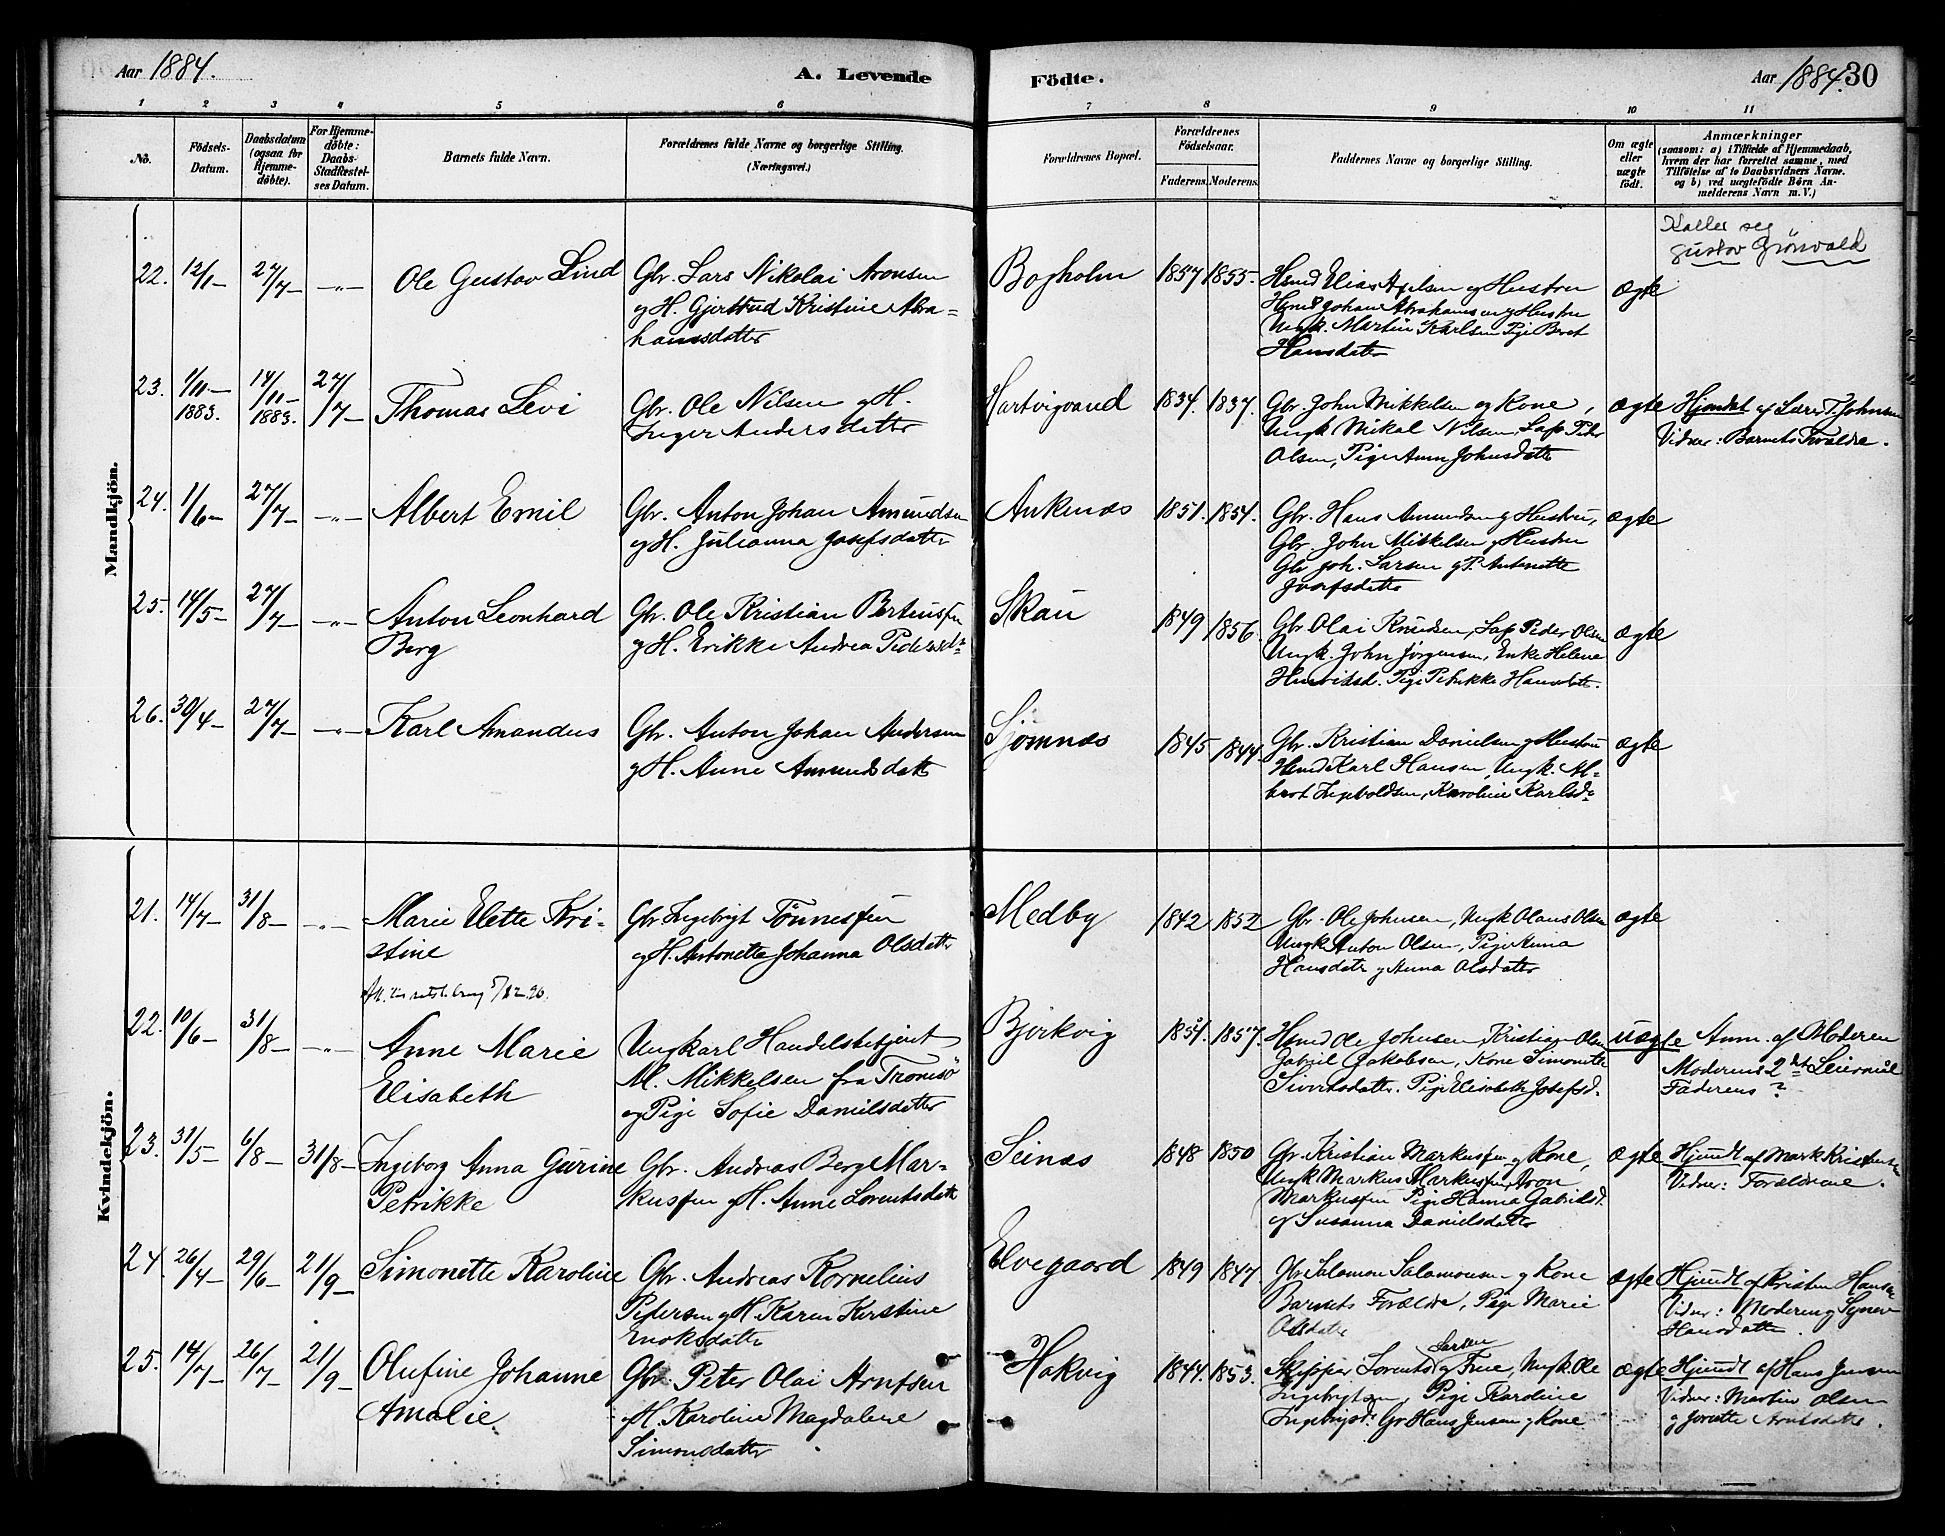 Aar 1884.
A. Levende
Födte.
Aar 1884. 30
1 2 3 4 5 6 7 8 9 10 11
No.
Födsels-
Datum.
Daabsdatum
(ogsaa for
Hjemme-
döbte).
For Hjemme-
döbte:
Daabs-
Stadfæstel-
ses Datum.
Barnets fulde Navn.
Forældrenes fulde Navne og borgerlige Stilling.
(Næringsvei.)
Forældrenes Bopæl.
Forældrenes
Födselsaar.
Faderens. Moderens.
Faddernes Navne og borgerlige Stilling.
Om ægte
eller
uægte
født.
Anmærkninger
(saasom: a) i Tilfælde af Hjemmedaab,
hvem der har forrettet samme, med
Tilføielse af to Daabsvidners Navne.
og b) ved uægtefödte Börn An-
melderens Navn m. V.)
Mandkjön.
Kaller seg
Gustav Grönvald
22. 12/1 27/7 – –"– Ole Gustav Lind
Gbr. Lars Nikolai Aronsen
og H. Gjertrud Kristine Abra=
hamsdatter
Bogholm 1857 1855.
Hmd Elias Apelsen og Hustru
Hmd Johan Abrahamsen og Hustru
Ungk. Martin Karlsen Pige Beret
Hansdatter
ægte
23. 1/10 – 1883. 14/11 – 1883. 27/7 – Thomas Levi
Gbr. Ole Nilsen og H.
Inger Andersdatter
Hartvigvand 1834. 1837.
Gbr. John Mikkelsen og Kone,
Ungk Mikal Nilsen, Lap Peder
Olsen, Pige Anna Johnsdatter
ægte
Hjemdøbt af Lærer T. Johnsen
Vidner: Barnets Forældre.
24. 1/6 – 27/7 – –"– Albert Emil
Gbr. Anton Johan Amundsen
og H. Julianna Josefsdatter
Ankenæs 1851. 1854.
Gbr. Hans Amundsen og Hustru,
Gbr. John Mikkelsen og Hustru
Gbr Joh. Larsen og P. Antonette
Josefsdatter
ægte
25. 14/5 – 27/7 – –"– Anton Leonhard
Berg
Gbr. Ole Kristian Berteussen
og H. Erikke Andrea Pedersd.
Skau 1849 1856.
Gbr Olai Knudsen, Lap Peder Olsen
Ungk. John Jørgensen, Enke Helene
Pige Petrikke Hansdatter.
ægte
26. 30/4 – 27/7 – –"– Karl Amandus
Gbr. Anton Johan Andersen
og H. Anne Amundsdatter
Sjomnæs 1845 1844
Gbr. Kristian Danielsen og Hustru
Hmd Karl Hansen, Ungk. Al=
bert Ingeboldsen, Karoline Karlsd.
ægte
Kvindekjön.
21. 14/7 – 31/8 – –"– Marie Elette Kri-
stine
Gbr Ingebrigt Tönnessen
og H. Antonette Johanna Olsdatter
Medby 1842 1852
Gbr. Ole Johnsen, Ungk Olaus Olsen
Ungk Anton Olsen, Pige Anna
Hansdatr og Anna Olsdatter
ægte
22. 10/6 – 31/8 – –"– Anne Marie
Elisabeth
Ungkarl Handelsbetjent
M. Mikkelsen fra Tromsö
og Pige Sofie Danielsdatter
Bjerkvig 1854. 1857.
Hmd Ole Johnsen, Kristian Olsen
Gabriel Jakobsen, Kone Simonette
Sivertsdatter. Pige Elisabeth Josefsd.
uægte
Anm. af Moderen
Moderens 2det Leiermål
Faderens ?
23. 31/5 – 6/8 – 31/8 – Ingeborg Anna Gurine
Petrikke
Gbr. Andreas Berg Mar-
kussen og H. Anne Lorentsdatter
Seinæs 1848 1850
Gbr. Kristian Markussen og Kone,
Ungk Markus Markussen, Aron
Markussen Pige Hanna Gabrielsd.
og Susanna Danielsdatter
ægte
Hjemdt af Mark Kristensen
Vidner: Forældrene.
24. 26/4 – 29/6 – 21/9 – Simonette Karoline
Gbr. Andreas Kornelius
Pedersen og H. Karen Kirstine
Enoksdatter
Elvegaard 1849 1847
Gbr Salamon Salamonsen og Kone
Barnets Forældre, Pige Marie
Olsdatter
ægte
Hjemdt af Kristen Hansen
Vidner: Moderen og Synev
Hansdatter.
25. 14/7 – 26/7 – 21/9 – Olufine Johanne
Amalie
Gbr. Peter Olai Arntsen
og H. Karoline Magdalene
Simonsdatter
Hakvig 1844. 1853.
Larsen
Skipper Lorents og Frue, Ungk. Ole
Ingebrigtsen, Pige Karoline
Ingebrigtsd. Gbr Hans Jensen og Kone
ægte
Hjemdt af Hans Jensen
Vidner: Martin Olsen
og Jonette Arntsdatter.